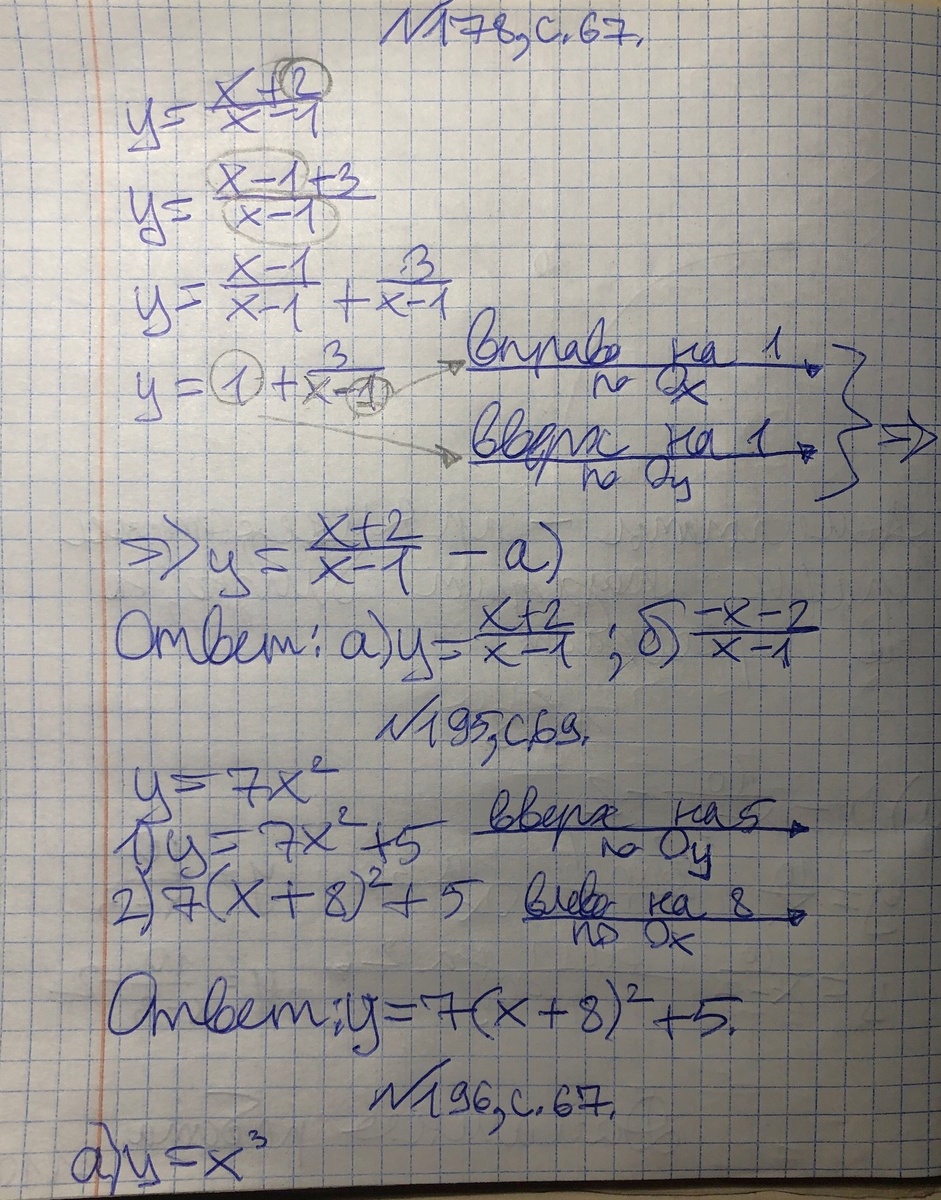 №178, с.67.
y = (x+2)/(x-1)
y = (x-1+3)/(x-1)
y = (x-1)/(x-1) + 3/(x-1)
y = 1 + 3/(x-1)
вправо на 1
по Ox
вверх на 1
по Oy
} ⇒
⇒ y = (x+2)/(x-1) - а)
Ответ: а) y = (x+2)/(x-1) ; б) (-x-2)/(x-1)
№195, с69.
y = 7x²
1) y = 7x² + 5 вверх на 5
по Oy
2) 7(x+8)² + 5 влево на 8
по Ox
Ответ: y = 7(x+8)² + 5.
№196, с.67.
а) y = x³